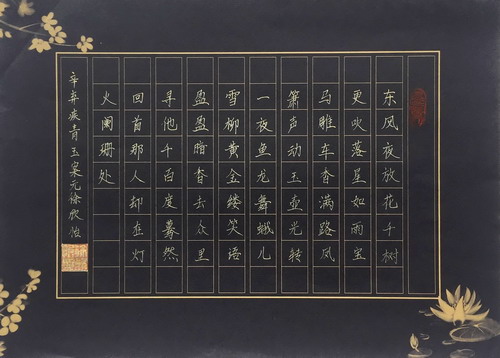 东风夜放花千树
更吹落星如雨宝
马雕车香满路凤
箫声动玉壶光转
一夜鱼龙舞蛾儿
雪柳黄金缕笑语
盈盈暗香去众里
寻他千百度蓦然
回首那人却在灯
火阑珊处
辛弃疾青玉案元徐欣怡